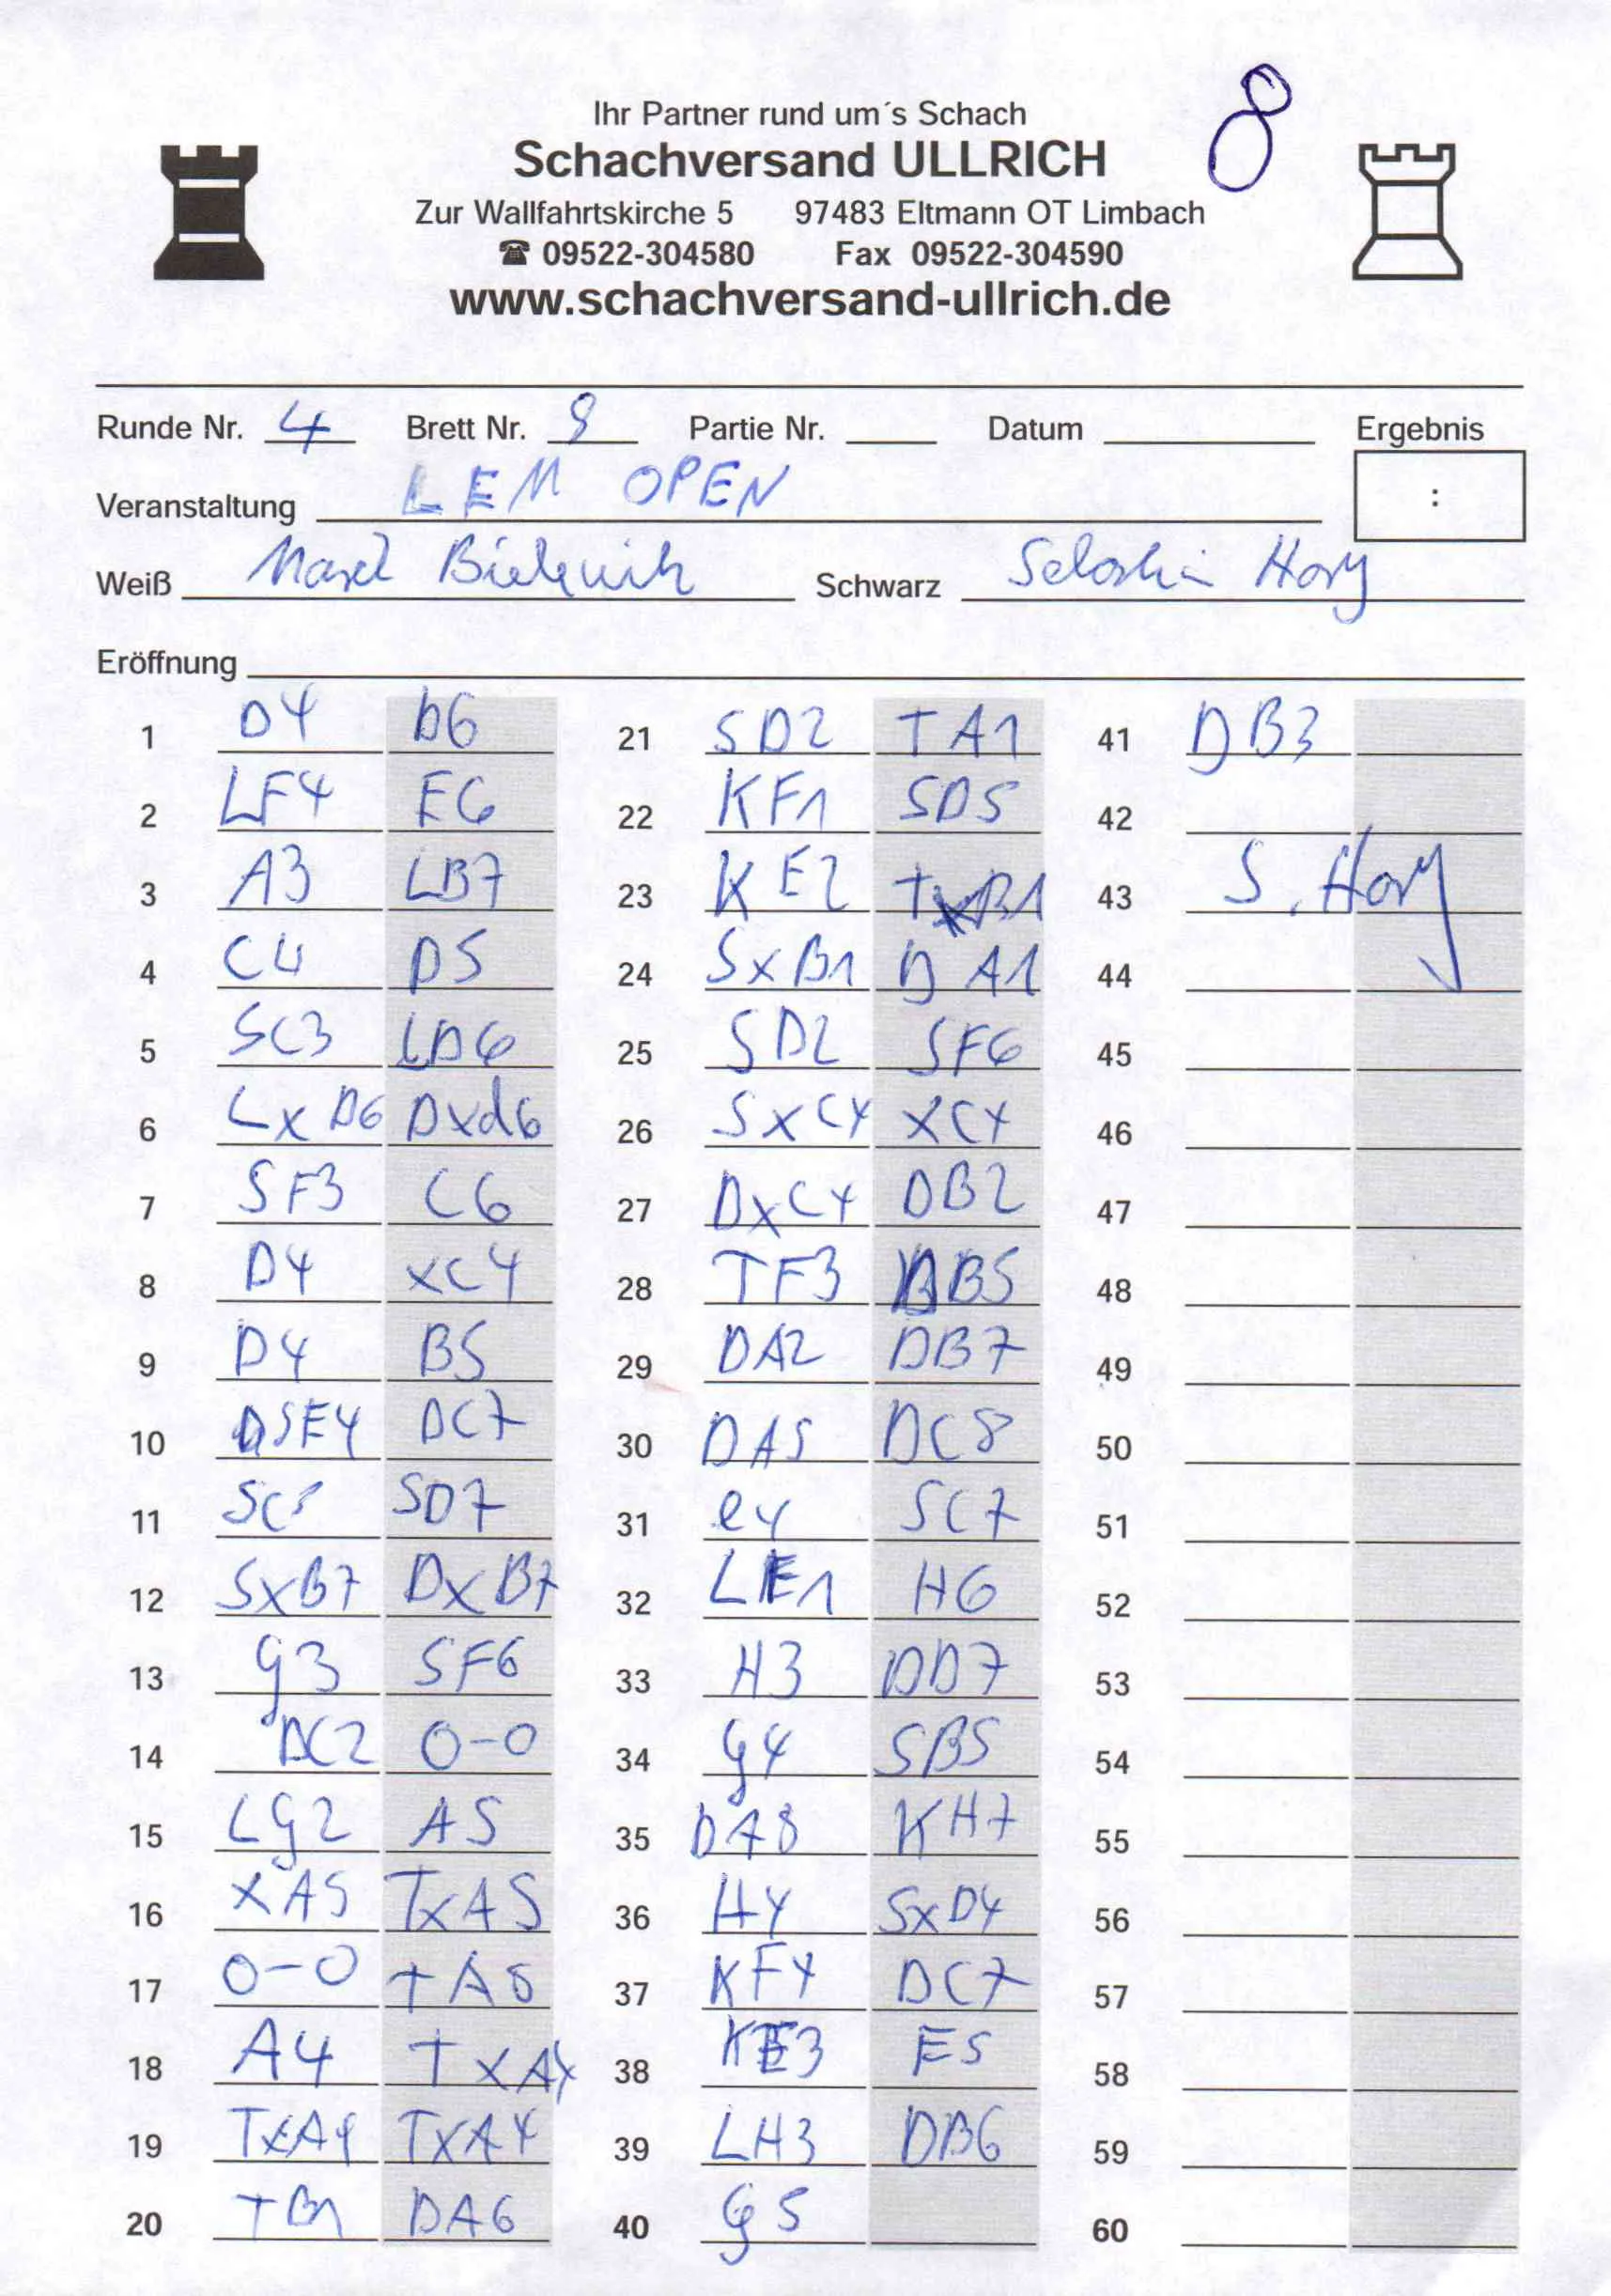 8
Ihr Partner rund um´s Schach
Schachversand ULLRICH
Zur Wallfahrtskirche 5 97483 Eltmann OT Limbach
☎ 09522-304580 Fax 09522-304590
www.schachversand-ullrich.de
Runde Nr. 4 Brett Nr. 8 Partie Nr. Datum Ergebnis
Veranstaltung LEM OPEN :
Weiß Schwarz Hory
Eröffnung
1 D4 b6 21 SD2 TA1 41 DB3
2 LF4 E6 22 KF1 SD5 42
3 A3 LB7 23 KE2 TxB1 43 S. Hory
4 C4 D5 24 SxB1 DA1 44
5 SC3 LD6 25 SD2 SF6 45
6 LxD6 Dxd6 26 SxC4 xC4 46
7 SF3 C6 27 DxC4 DB2 47
8 D4 xC4 28 TF3 DB5 48
9 D4 B5 29 DA2 DB7 49
10 SE4 DC7 30 DA5 DC8 50
11 SC5 SD7 31 e4 SC7 51
12 SxB7 DxB7 32 LE1 H6 52
13 g3 SF6 33 H3 DD7 53
14 DC2 0-0 34 g4 SB5 54
15 Lg2 A5 35 DA8 KH7 55
16 xA5 TxA5 36 H4 SxD4 56
17 0-0 TA8 37 KF4 DC7 57
18 A4 TxA4 38 KE3 E5 58
19 TxA4 TxA4 39 LH3 DB6 59
20 TB1 DA6 40 g5 60